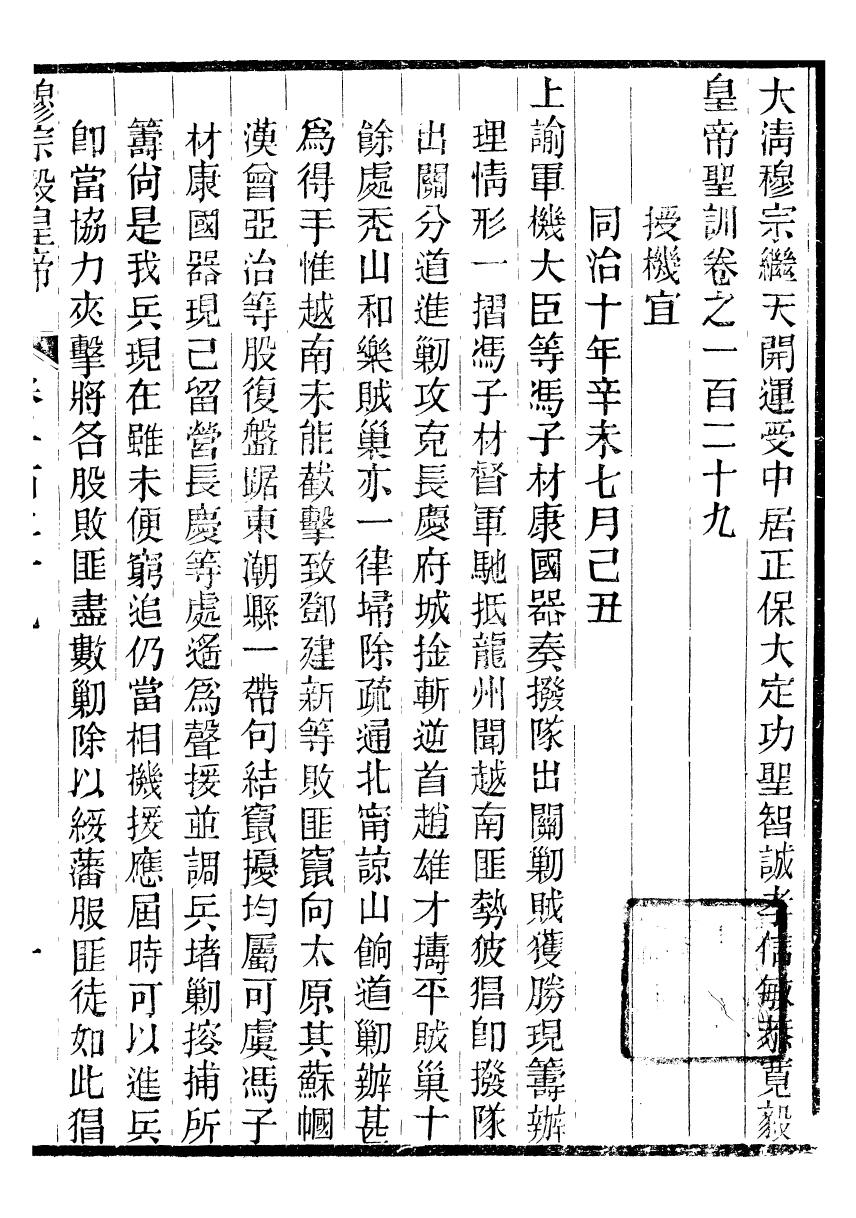 大清穆宗繼天開運受中居正保大定功聖智誠孝信敏恭寬毅
皇帝聖訓卷之一百二十九
授機宜
同治十年辛未七月己丑
上諭軍機大臣等馮子材康國器奏撥隊出關勦賊獲勝現籌辦
理情形一摺馮子材督軍馳抵龍州聞越南匪勢狓猖卽撥隊
出關分道進勦攻克長慶府城捡斬逆首趙雄才擣平賊巢十
餘處禿山和樂賊巢亦一律埽除疏通北甯諒山餉道勦辦甚
爲得手惟越南未能截擊致鄧建新等敗匪竄向太原其蘇幗
漢曾亞治等股復盤踞東潮縣一帶句結竄擾均屬可虞馮子
材康國器現已留營長慶等處遙爲聲援並調兵堵勦搜捕所
籌尙是我兵現在雖未便窮追仍當相機援應屆時可以進兵
卽當協力夾擊將各股敗匪盡數勦除以綏藩服匪徒如此猖
穆宗毅皇帝 卷一百二十九 一